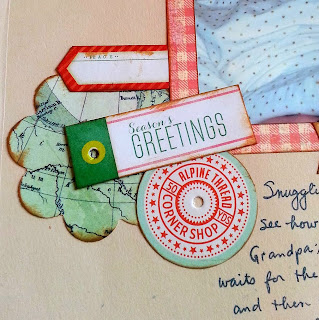 PLACE
Season's
GREETINGS
ALPINE THREAD
50 YDS
CORNER SHOP
see how
Grandpa
waits for the
and then